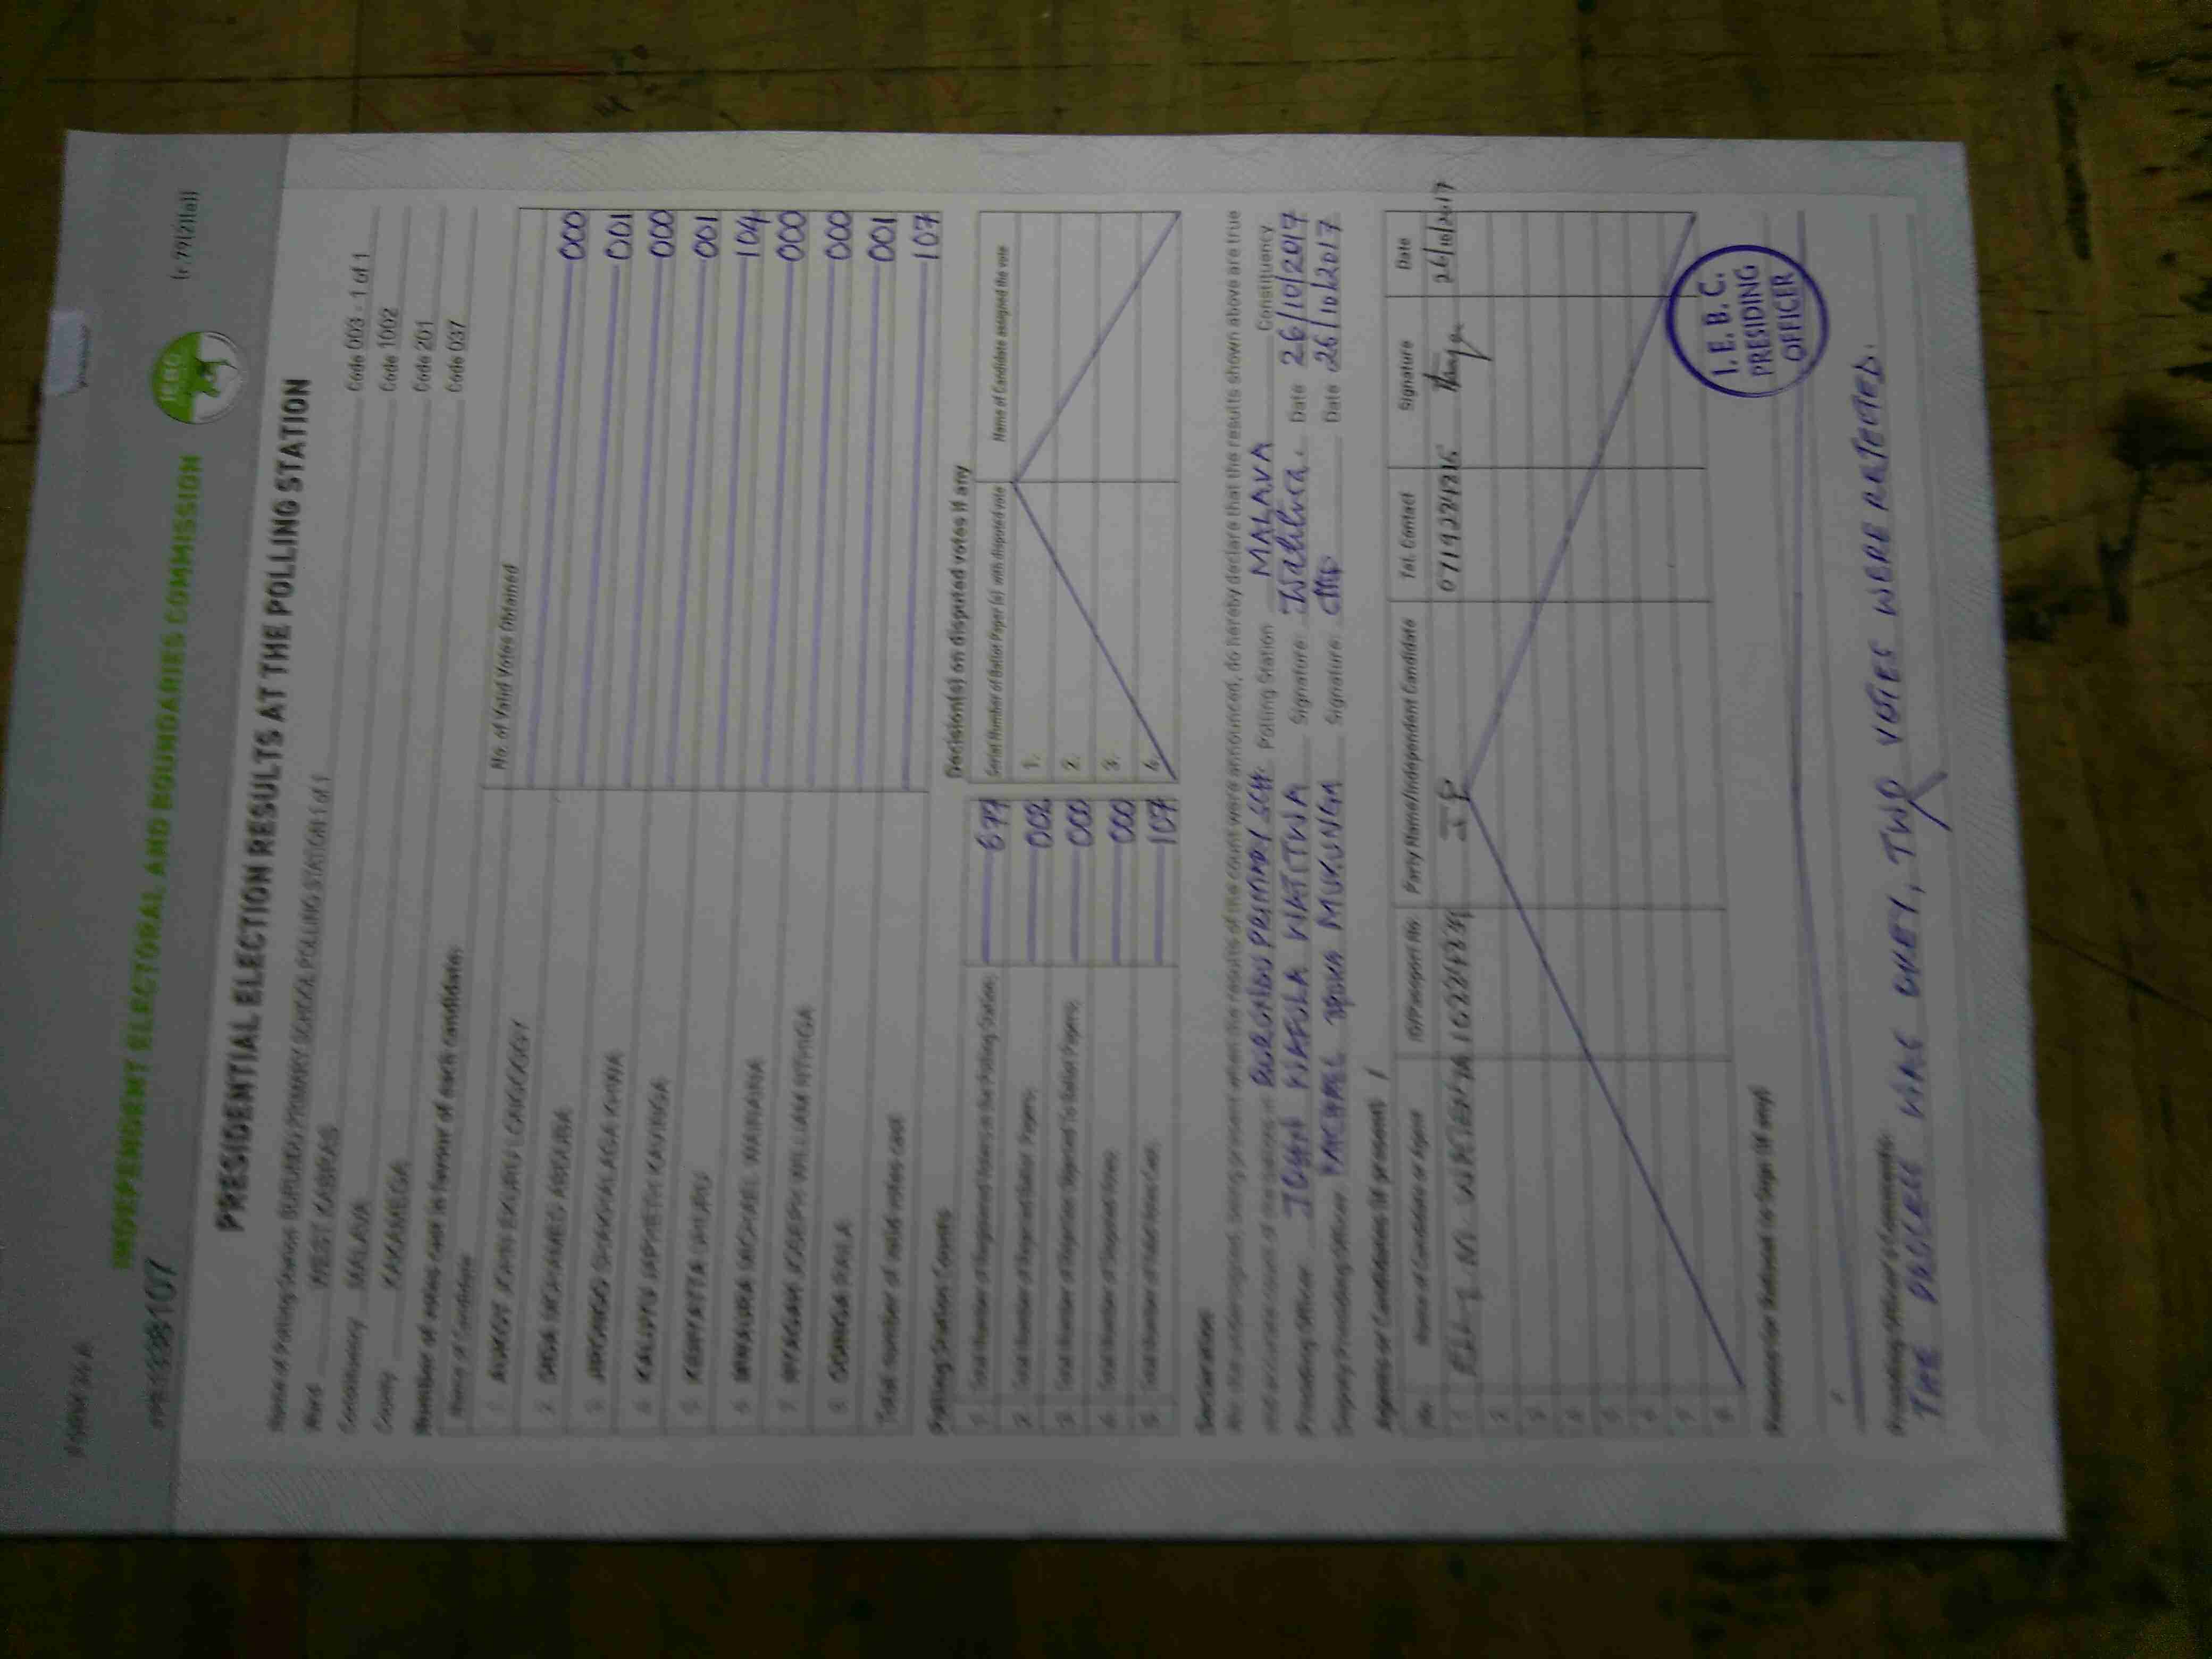 FORM 34A
(r.79(2)(a))
INDEPENDENT ELECTORAL AND BOUNDARIES COMMISSION
IEBC
PRESIDENTIAL ELECTION RESULTS AT THE POLLING STATION
Name of Polling Station BURUNDU PRIMARY SCHOOL POLLING STATION 1 of 1 Code 003 - 1 of 1
Ward WEST KABRAS Code 1002
Constituency MALAVA Code 201
County KAKAMEGA Code 037
Number of votes cast in favour of each candidate:
Name of Candidate No. of Valid Votes Obtained
1. AUKOT JOHN EKURU LONGOGGY 000
2. DIDA MOHAMED ABDUBA 001
3. JIRONGO SHAKHALAGA KHWA 000
4. KALUYU JAPHETH KAVINGA 001
5. KENYATTA UHURU 104
6. MWAURA MICHAEL WAINAINA 000
7. NYAGAH JOSEPH WILLIAM NTHIGA 000
8. ODINGA RAILA 001
Total number of valid votes cast 107
Polling Station Counts
1. Total Number of Registered Voters in the Polling Station 677
2. Total Number of Rejected Ballot Papers 002
3. Total Number of Rejection Objected To Ballot Papers 000
4. Total Number of Disputed Votes 000
5. Total Number of Valid Votes Cast 107
Decision(s) on disputed votes if any
Serial Number of Ballot Paper (s) with disputed vote Name of Candidate assigned the vote
1.
2.
3.
4.
Declaration
We, the undersigned, being present when the results of the count were announced, do hereby declare that the results shown above are true
and accurate count of the ballots in BURUNDU PRIMARY SCH. Polling Station MALAVA Constituency.
Presiding Officer JOHN WAFULA WATITWA Signature Date 26/10/2017
Deputy Presiding Officer MICHAEL MUKUNGA Signature Date 26/10/2017
Agents or Candidates (if present)
No. Name of Candidate or Agent ID/Passport No. Party Name/Independent Candidate Tel. Contact Signature Date
1 JP 26/10/2017
2
3
4
5
6
7
8
Reasons for Refusal to Sign (if any)
I.E.B.C.
PRESIDING
OFFICER
Presiding Officer's Comments:
THE PROCESS WAS QUIET, TWO VOTES WERE REJECTED.